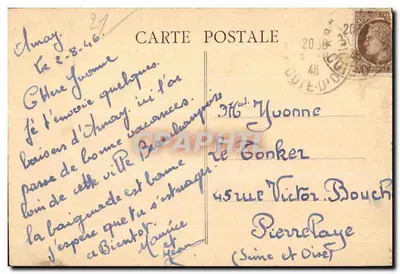 CARTE POSTALE
Arnay
le 2-8-46
Chère Yvonne
Je t'envoie quelques
baisers d'Arnay ici l'on
passe de bonne vacances.
loin de cette ville
la baignade est bonne
j'espère que tu
a Bientot.
Maurice
et
Jean
Mad. Yvonne
Le Conker
45 rue Victor. Bouch
Pierrelaye
(Seine et Oise)
46
COTE-D'OR